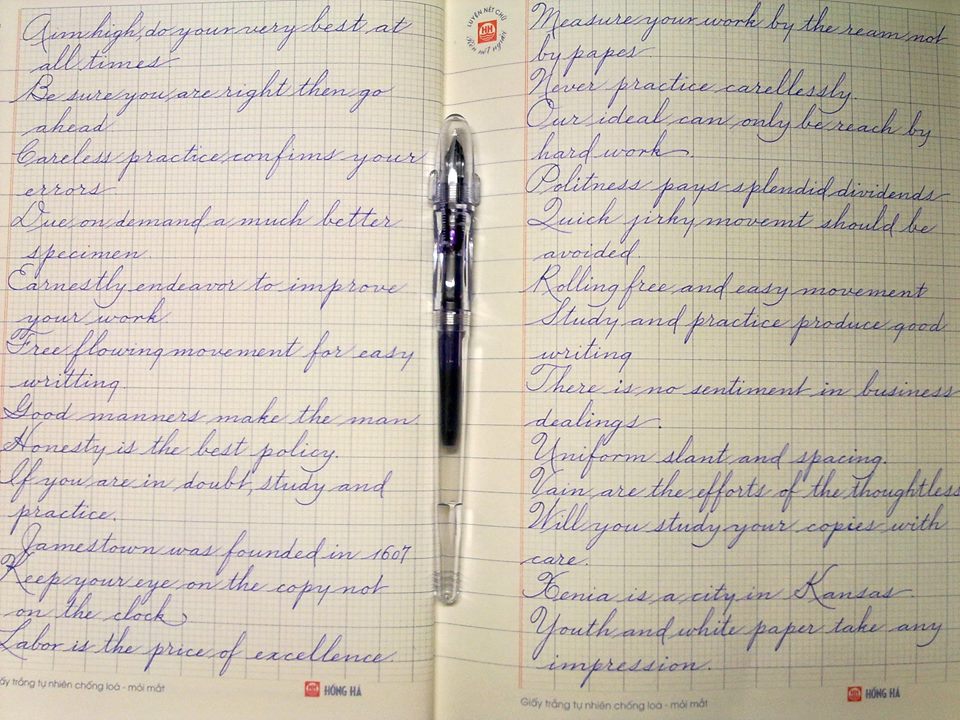 Aim high, do your very best at
all times
Be sure you are right then go
ahead.
Careless practice confims your
errors.
Due on demand a much better
specimen.
Earnestly endeavor to improve
your work
Free flowing movement for easy
writting.
Good manners make the man.
Honesty is the best policy.
If you are in doubt, study and
practice.
Jamestown was founded in 1607
Keep your eye on the copy not
on the clock
Labor is the price of excellence.
Giấy trắng tự nhiên chống loá - mỏi mắt
HỒNG HÀ
LUYỆN NÉT CHỮ
Rèn nết người
Measure your work by the ream not
by papes.
Never practice carellessly.
Our ideal can only be reach by
hard work.
Politness pays splendid dividends
Quick jirky movemt should be
avoided.
Rolling free and easy movement
Study and practice produce good
writing
There is no sentiment in business
dealings.
Uniform slant and spacing.
Vain are the efforts of the thoughtless
Will you study your copies with
care.
Xenia is a city in Kansas.
Youth and white paper take any
impression.
Giấy trắng tự nhiên chống loá - mỏi mắt
HỒNG HÀ